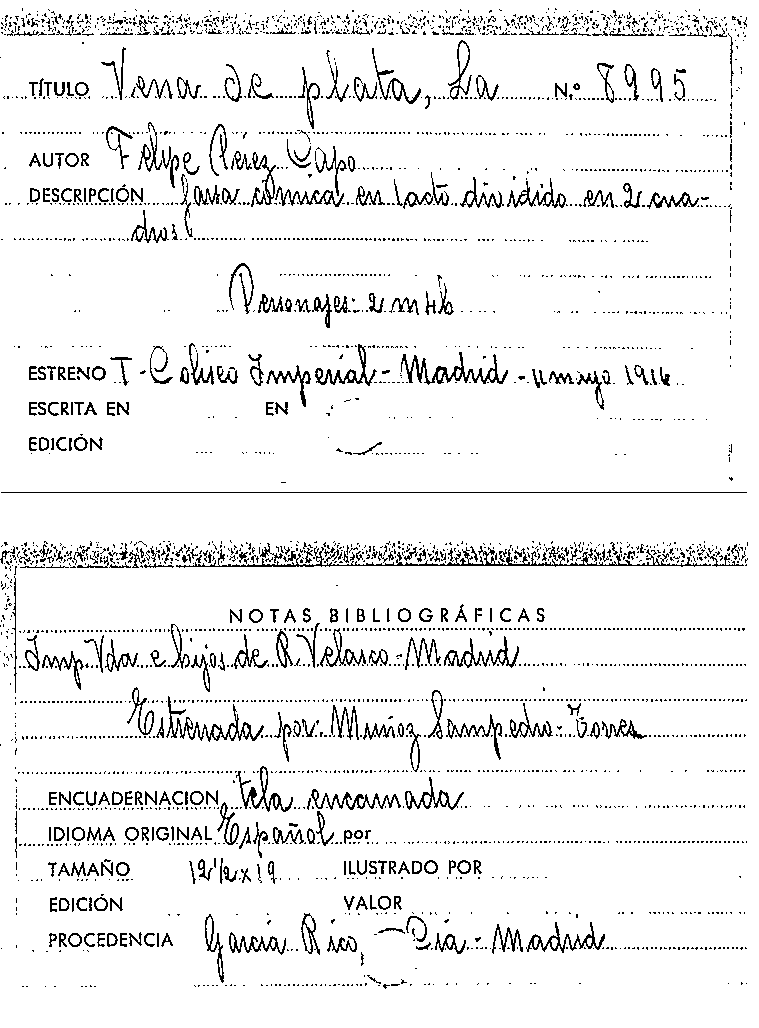 TÍTULO Vena de plata, La N.º 8995
AUTOR Felipe Pérez Capo
DESCRIPCIÓN farsa cómica en 1 acto dividido en 2 cua-
dros
Personajes: 2 m 4 h
ESTRENO T - Coliseo Imperial - Madrid - 11 mayo 1916
ESCRITA EN EN
EDICIÓN
NOTAS BIBLIOGRÁFICAS
Imp. Vda e hijos de R. Velasco - Madrid
Estrenada por: Muñoz Sampedro - Torres
ENCUADERNACION tela encarnada
IDIOMA ORIGINAL Español por
TAMAÑO 12 1/2 x 19 ILUSTRADO POR
EDICIÓN VALOR
PROCEDENCIA García Rico, Cía - Madrid